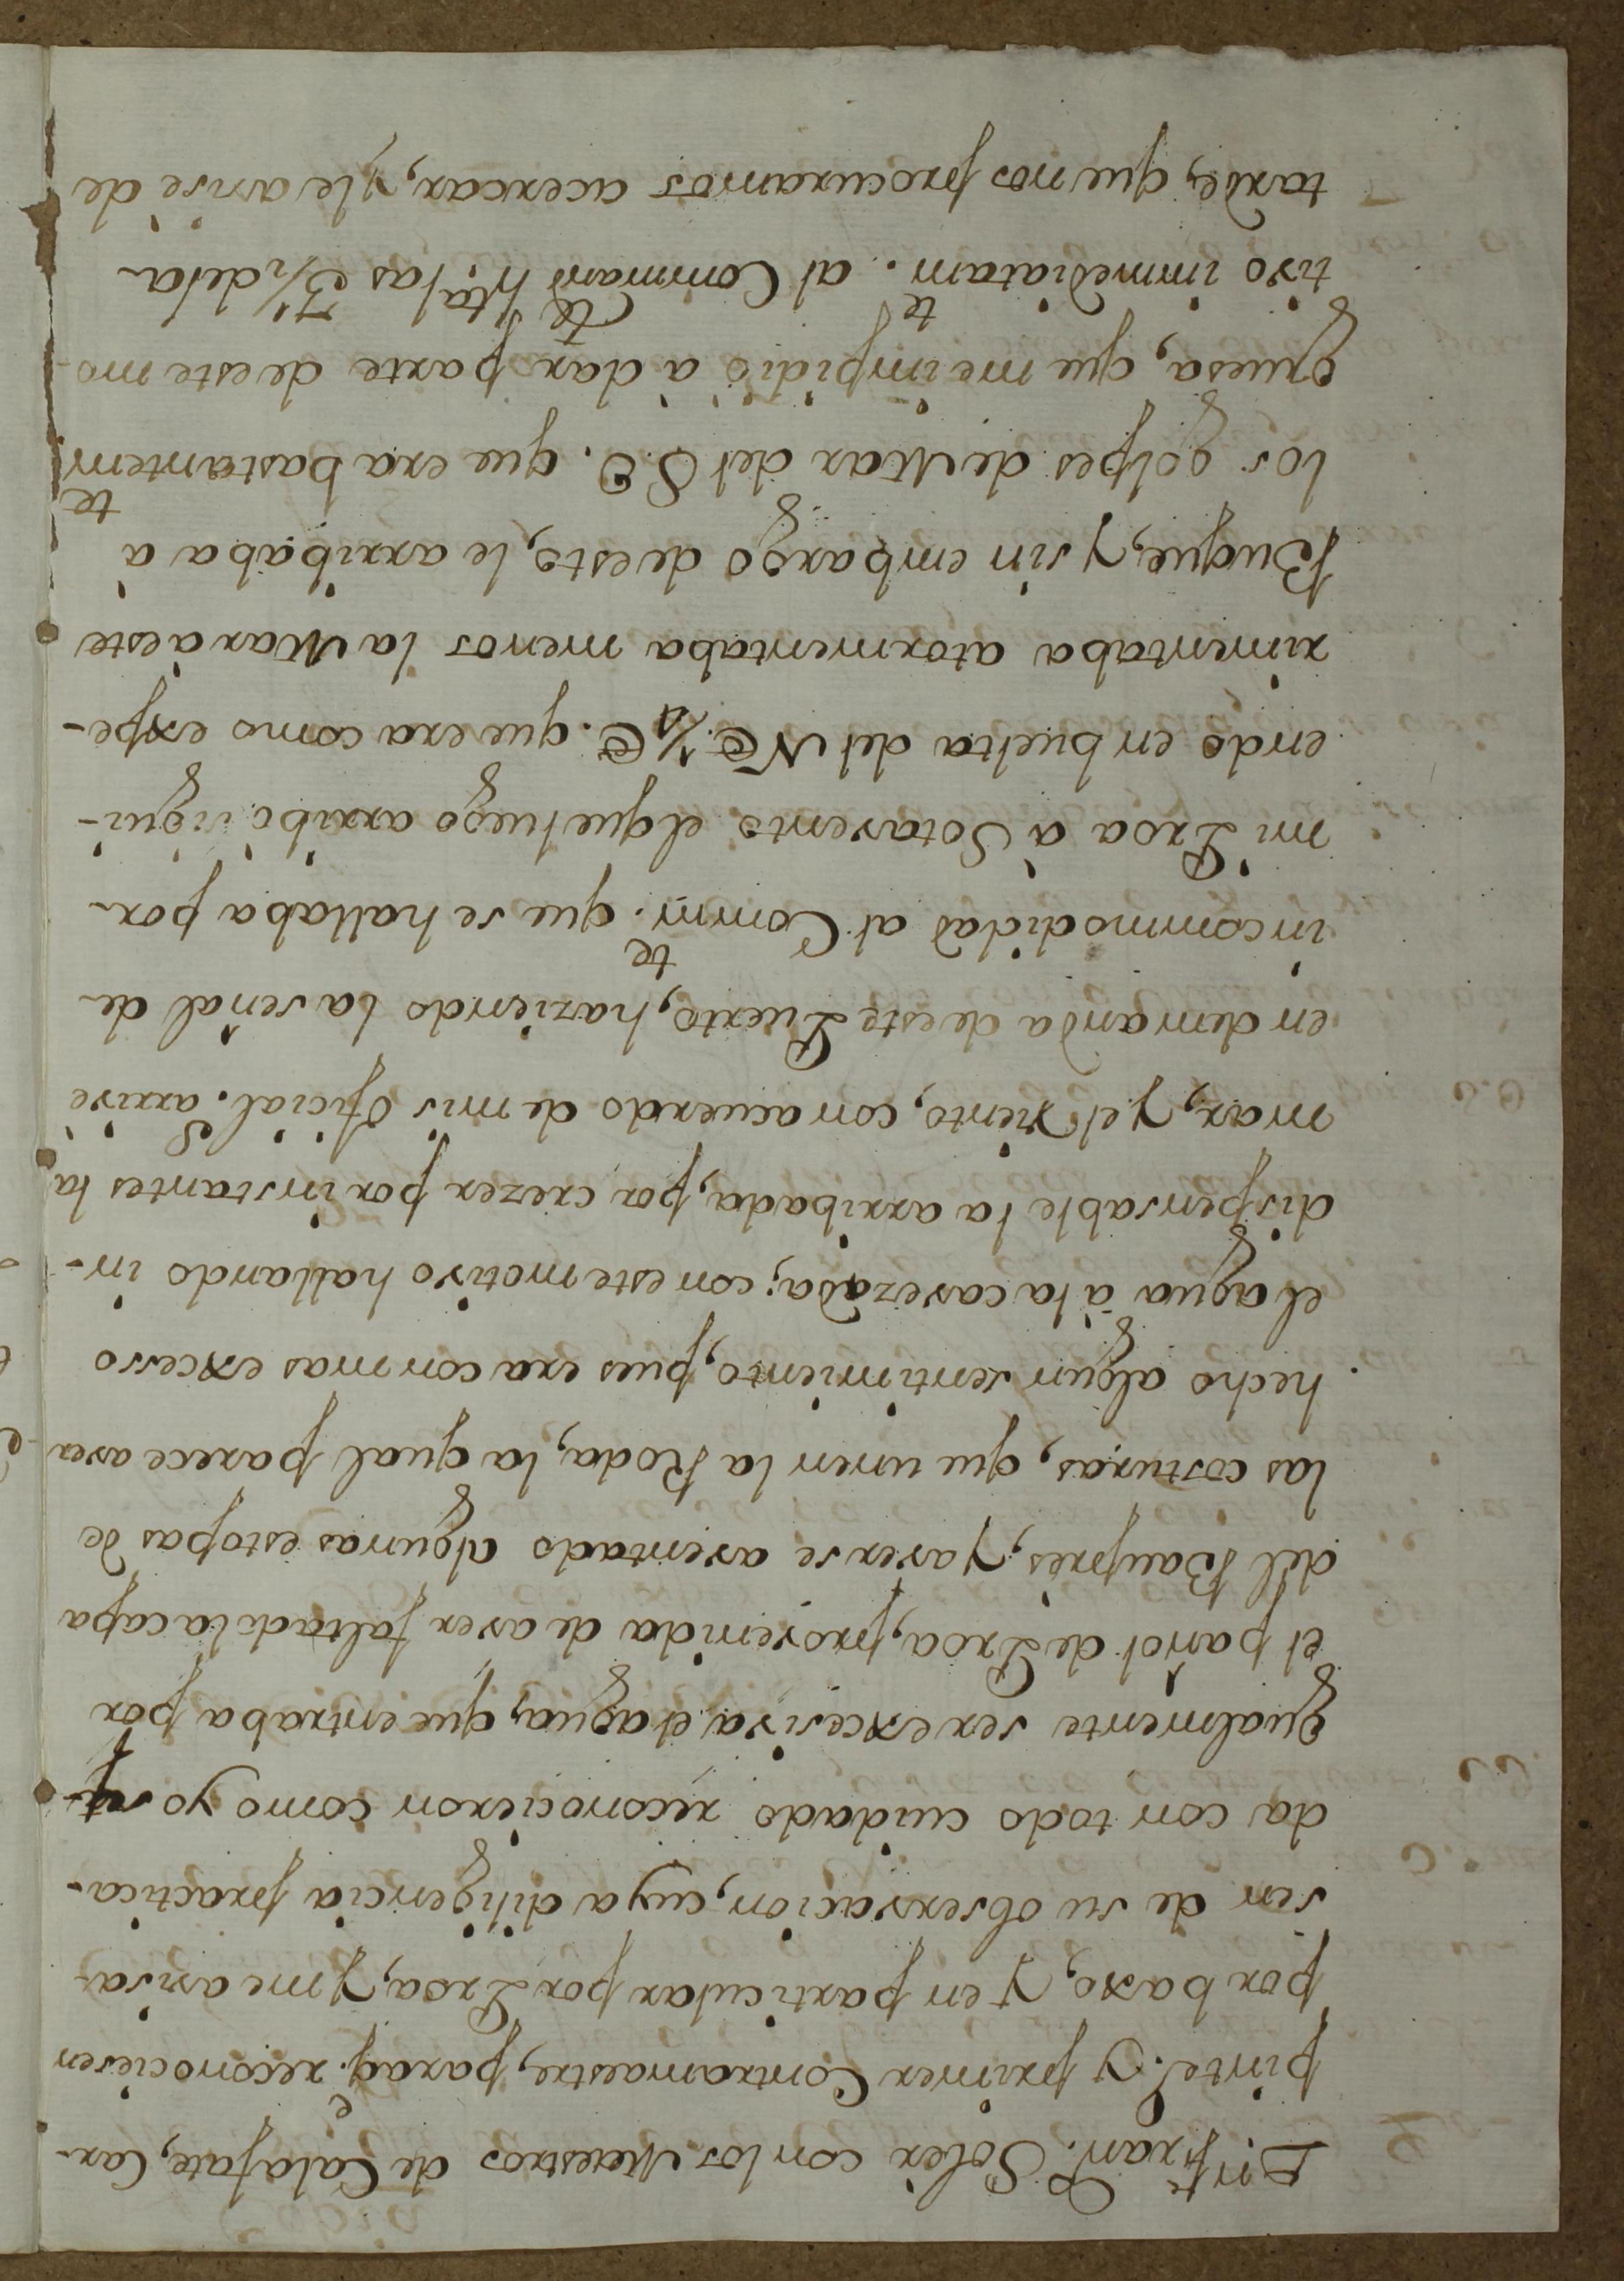 Dn. Fran.co Soler con los Maestros de Calafate, Car-
pinte.o y primer Contramaestre, para q.e reconociesen
por baxo, y en particular por Proa, y me avisa-
sen de su observacion, cuya diligencia practica-
da con todo cuidado reconocieron como yo y-
gualmente ser excesiva el agua, que entraba por
el pañol de Proa, provenida de aver faltado la capa
del Bauprès, y averse aventado algunas estopas de
las costuras, que unen la Roda, la qual parece aver
hecho algun sentimiento, pues era con mas excesso
el agua à la cavezada; con este motivo hallando in-
dispensable la arribada, por crezer por instantes la
mar, y el viento, con acuerdo de mis oficial.s arrivè
en demanda de este Puerto, haziendo la señal de
incommodidad al Comm.te que se hallaba por
mi Proa à Sotavento el que luego arribò sigui-
endo en buelta del NE 1/4 E. que era como expe-
rimentaba atormentaba menos la Mar à este
Buque, y sin embargo de esto, le arribaba à
los golpes de Mar del S.O. que era bastantem.te
gruesa, que me impidiò à dar parte de este mo-
tivo immediatam.te al Command.te h.ta las 3 1/2 de la
tarde, que nos procuramos acercar, y le avisè de